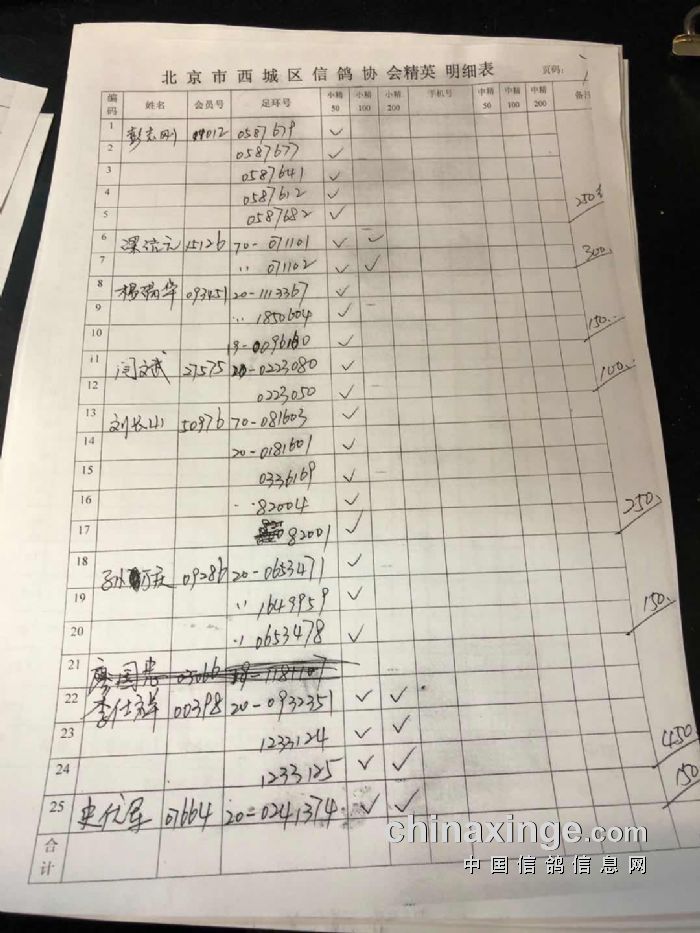 北京市西城区信鸽协会精英 明细表 页码:
编码 姓名 会员号 足环号 小精50 小精100 小精200 手机号 中精50 中精100 中精200 备注
1 彭志刚 09012 0587679 ✓
2 0587677 ✓
3 0587641 ✓
4 0587612 ✓
5 0587682 ✓ 250
6 15126 20-071101 ✓ ✓
7 〃 071102 ✓ ✓ 300
8 杨瑞华 093451 20-1113367 ✓
9 〃 1850604 ✓
10 19-0096160 ✓ 150
11 闫文武 27575 20-0223080 ✓
12 0223050 ✓ 100
13 刘长山 50976 20-081603 ✓
14 20-0181601 ✓
15 0336169 ✓
16 82004 ✓
17 82001 ✓ 250
18 09286 20-0653471 ✓
19 〃 1649959 ✓
20 〃 0653478 ✓ 150
21 廖国忠 03066 19-1181107
22 李仕祥 00398 20-0932351 ✓ ✓
23 1233124 ✓ ✓
24 1233125 ✓ ✓ 450
25 07664 20-0241374 ✓ ✓ 150
合计
chinaxinge.com
中国信鸽信息网